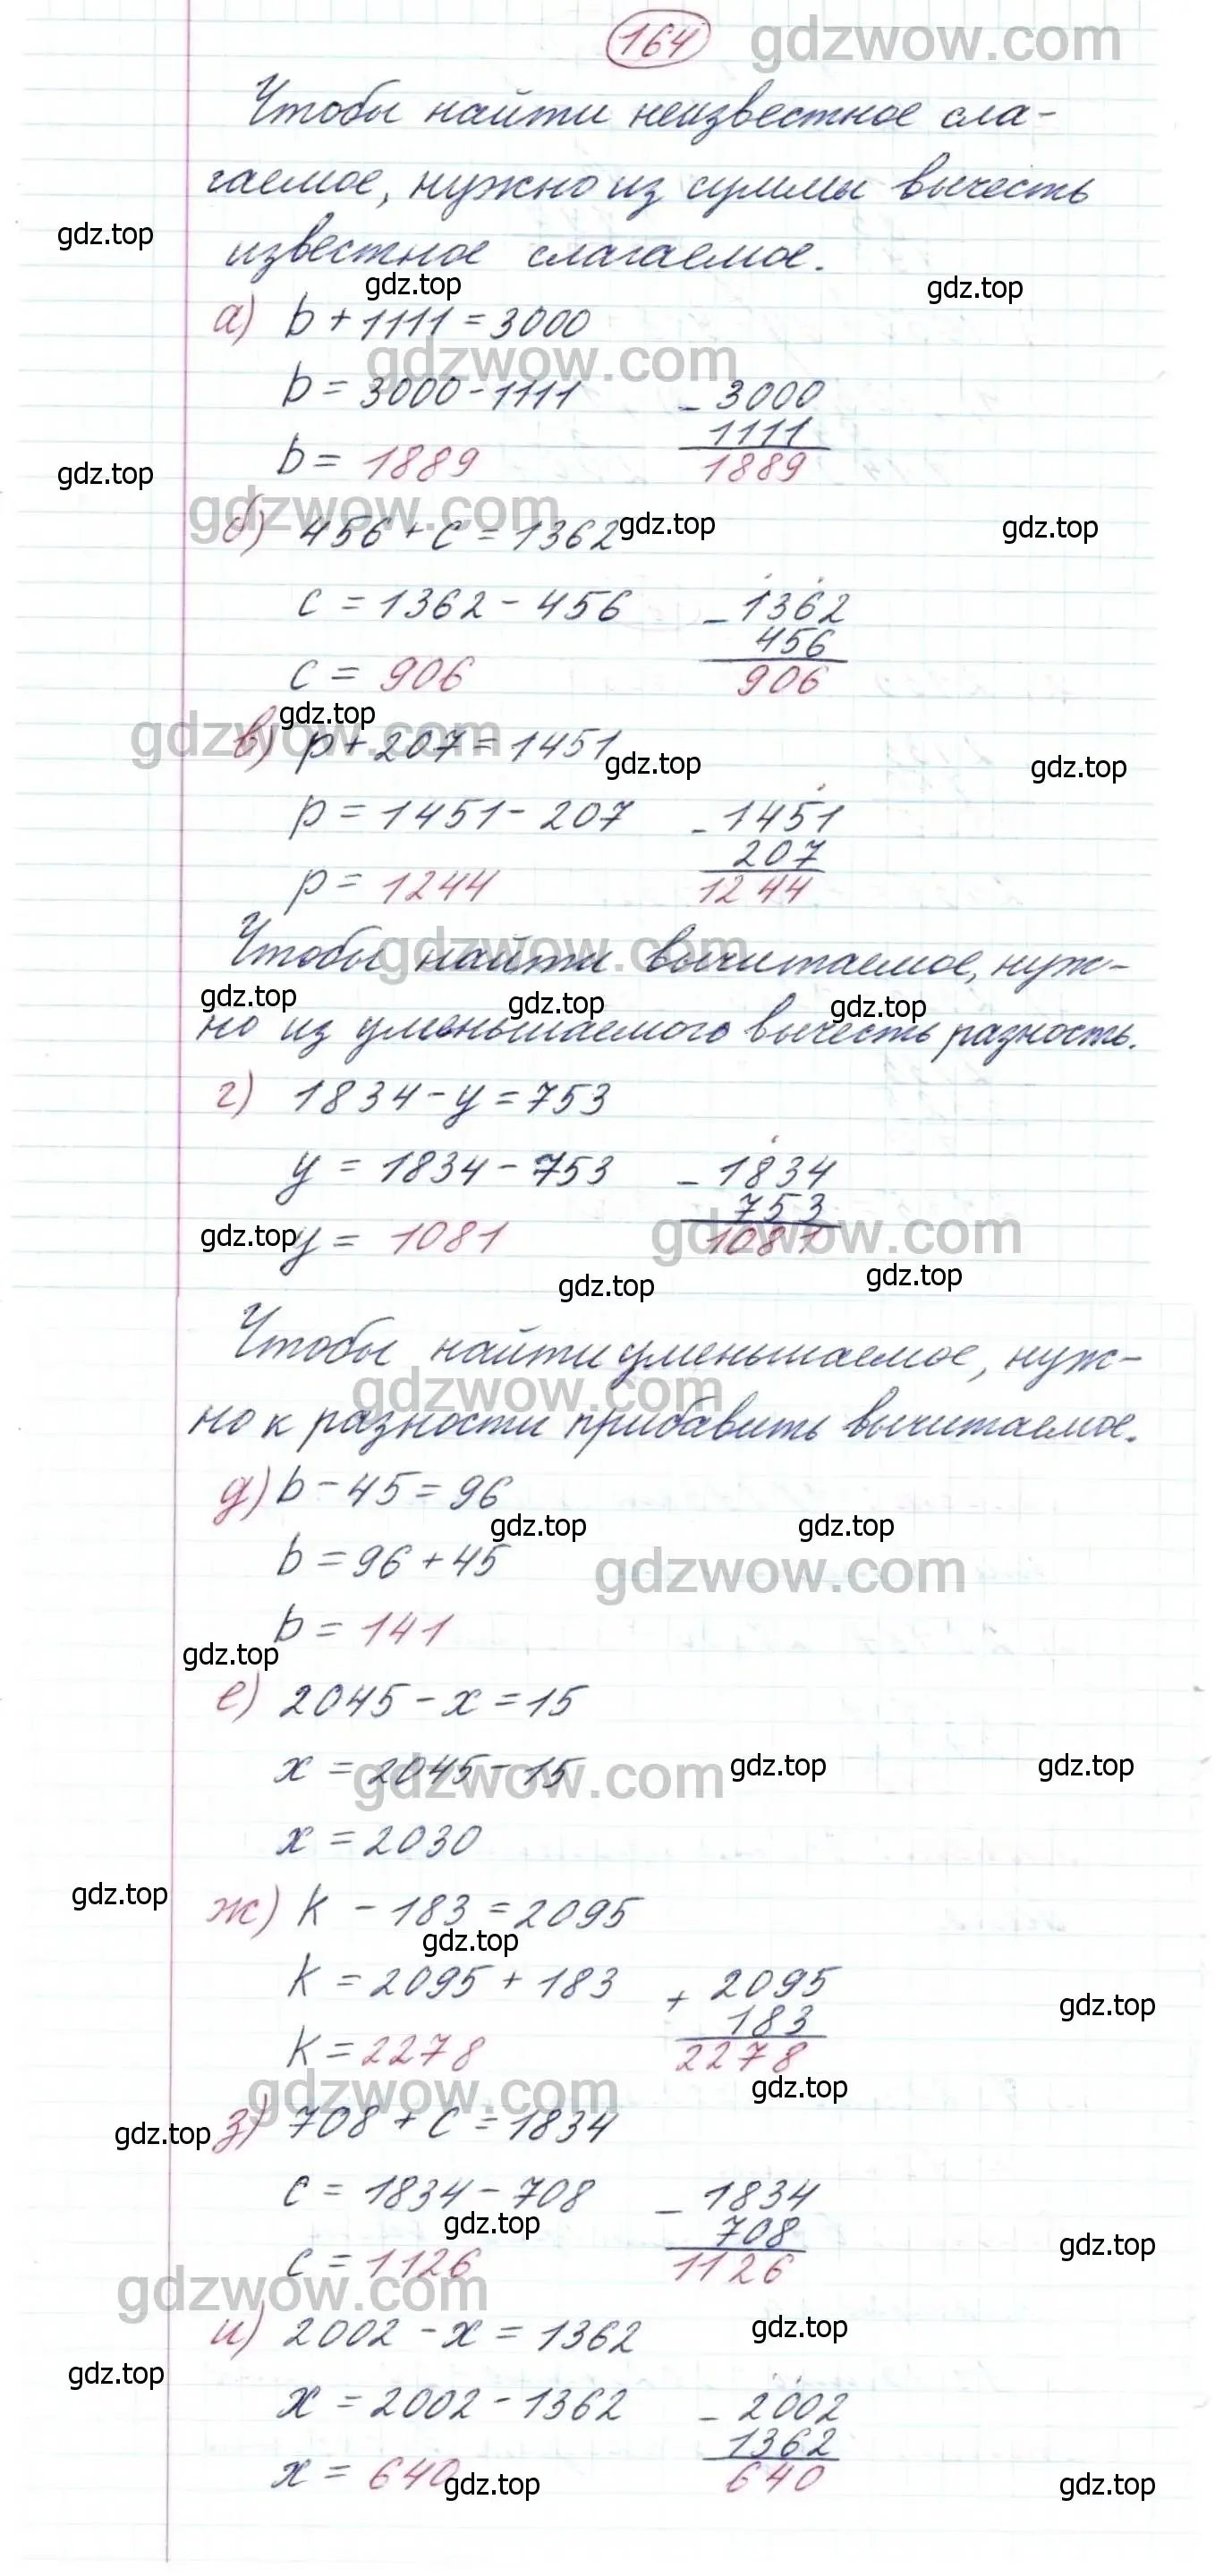 164 gdzwow.com
Чтобы найти неизвестное сла-
гаемое, нужно из суммы вычесть
gdz.top
известное слагаемое.
gdz.top gdz.top
а) b + 1111 = 3000
gdzwow.com
b = 3000 - 1111 - 3000
1111
b = 1889 1889
gdz.top
gdzwow.com gdz.top gdz.top
б) 456 + c = 1362
c = 1362 - 456 - 1362
456
c = 906 906
gdz.top
gdzwow.com
в) p + 207 = 1451
gdz.top gdz.top
p = 1451 - 207 - 1451
207
p = 1244 1244
Чтобы найти вычитаемое, нуж-
gdzwow.com
gdz.top gdz.top gdz.top
но из уменьшаемого вычесть разность.
г) 1834 - y = 753
y = 1834 - 753 - 1834
753
gdz.top y = 1081 1081
gdzwow.com
gdz.top gdz.top
Чтобы найти уменьшаемое, нуж-
gdzwow.com
но к разности прибавить вычитаемое.
д) b - 45 = 96
gdz.top gdz.top
b = 96 + 45
gdzwow.com
b = 141
gdz.top
е) 2045 - x = 15
x = 2045 - 15
gdzwow.com gdz.top gdz.top
x = 2030
gdz.top
ж) k - 183 = 2095
gdz.top
k = 2095 + 183 + 2095
gdz.top
183
k = 2278 2278
gdzwow.com gdz.top
gdz.top з) 708 + c = 1834
c = 1834 - 708 - 1834
gdz.top 708 gdz.top
c = 1126 1126
gdzwow.com
и) 2002 - x = 1362
gdz.top
gdz.top
x = 2002 - 1362 - 2002
1362
x = 640 640
gdz.top gdz.top